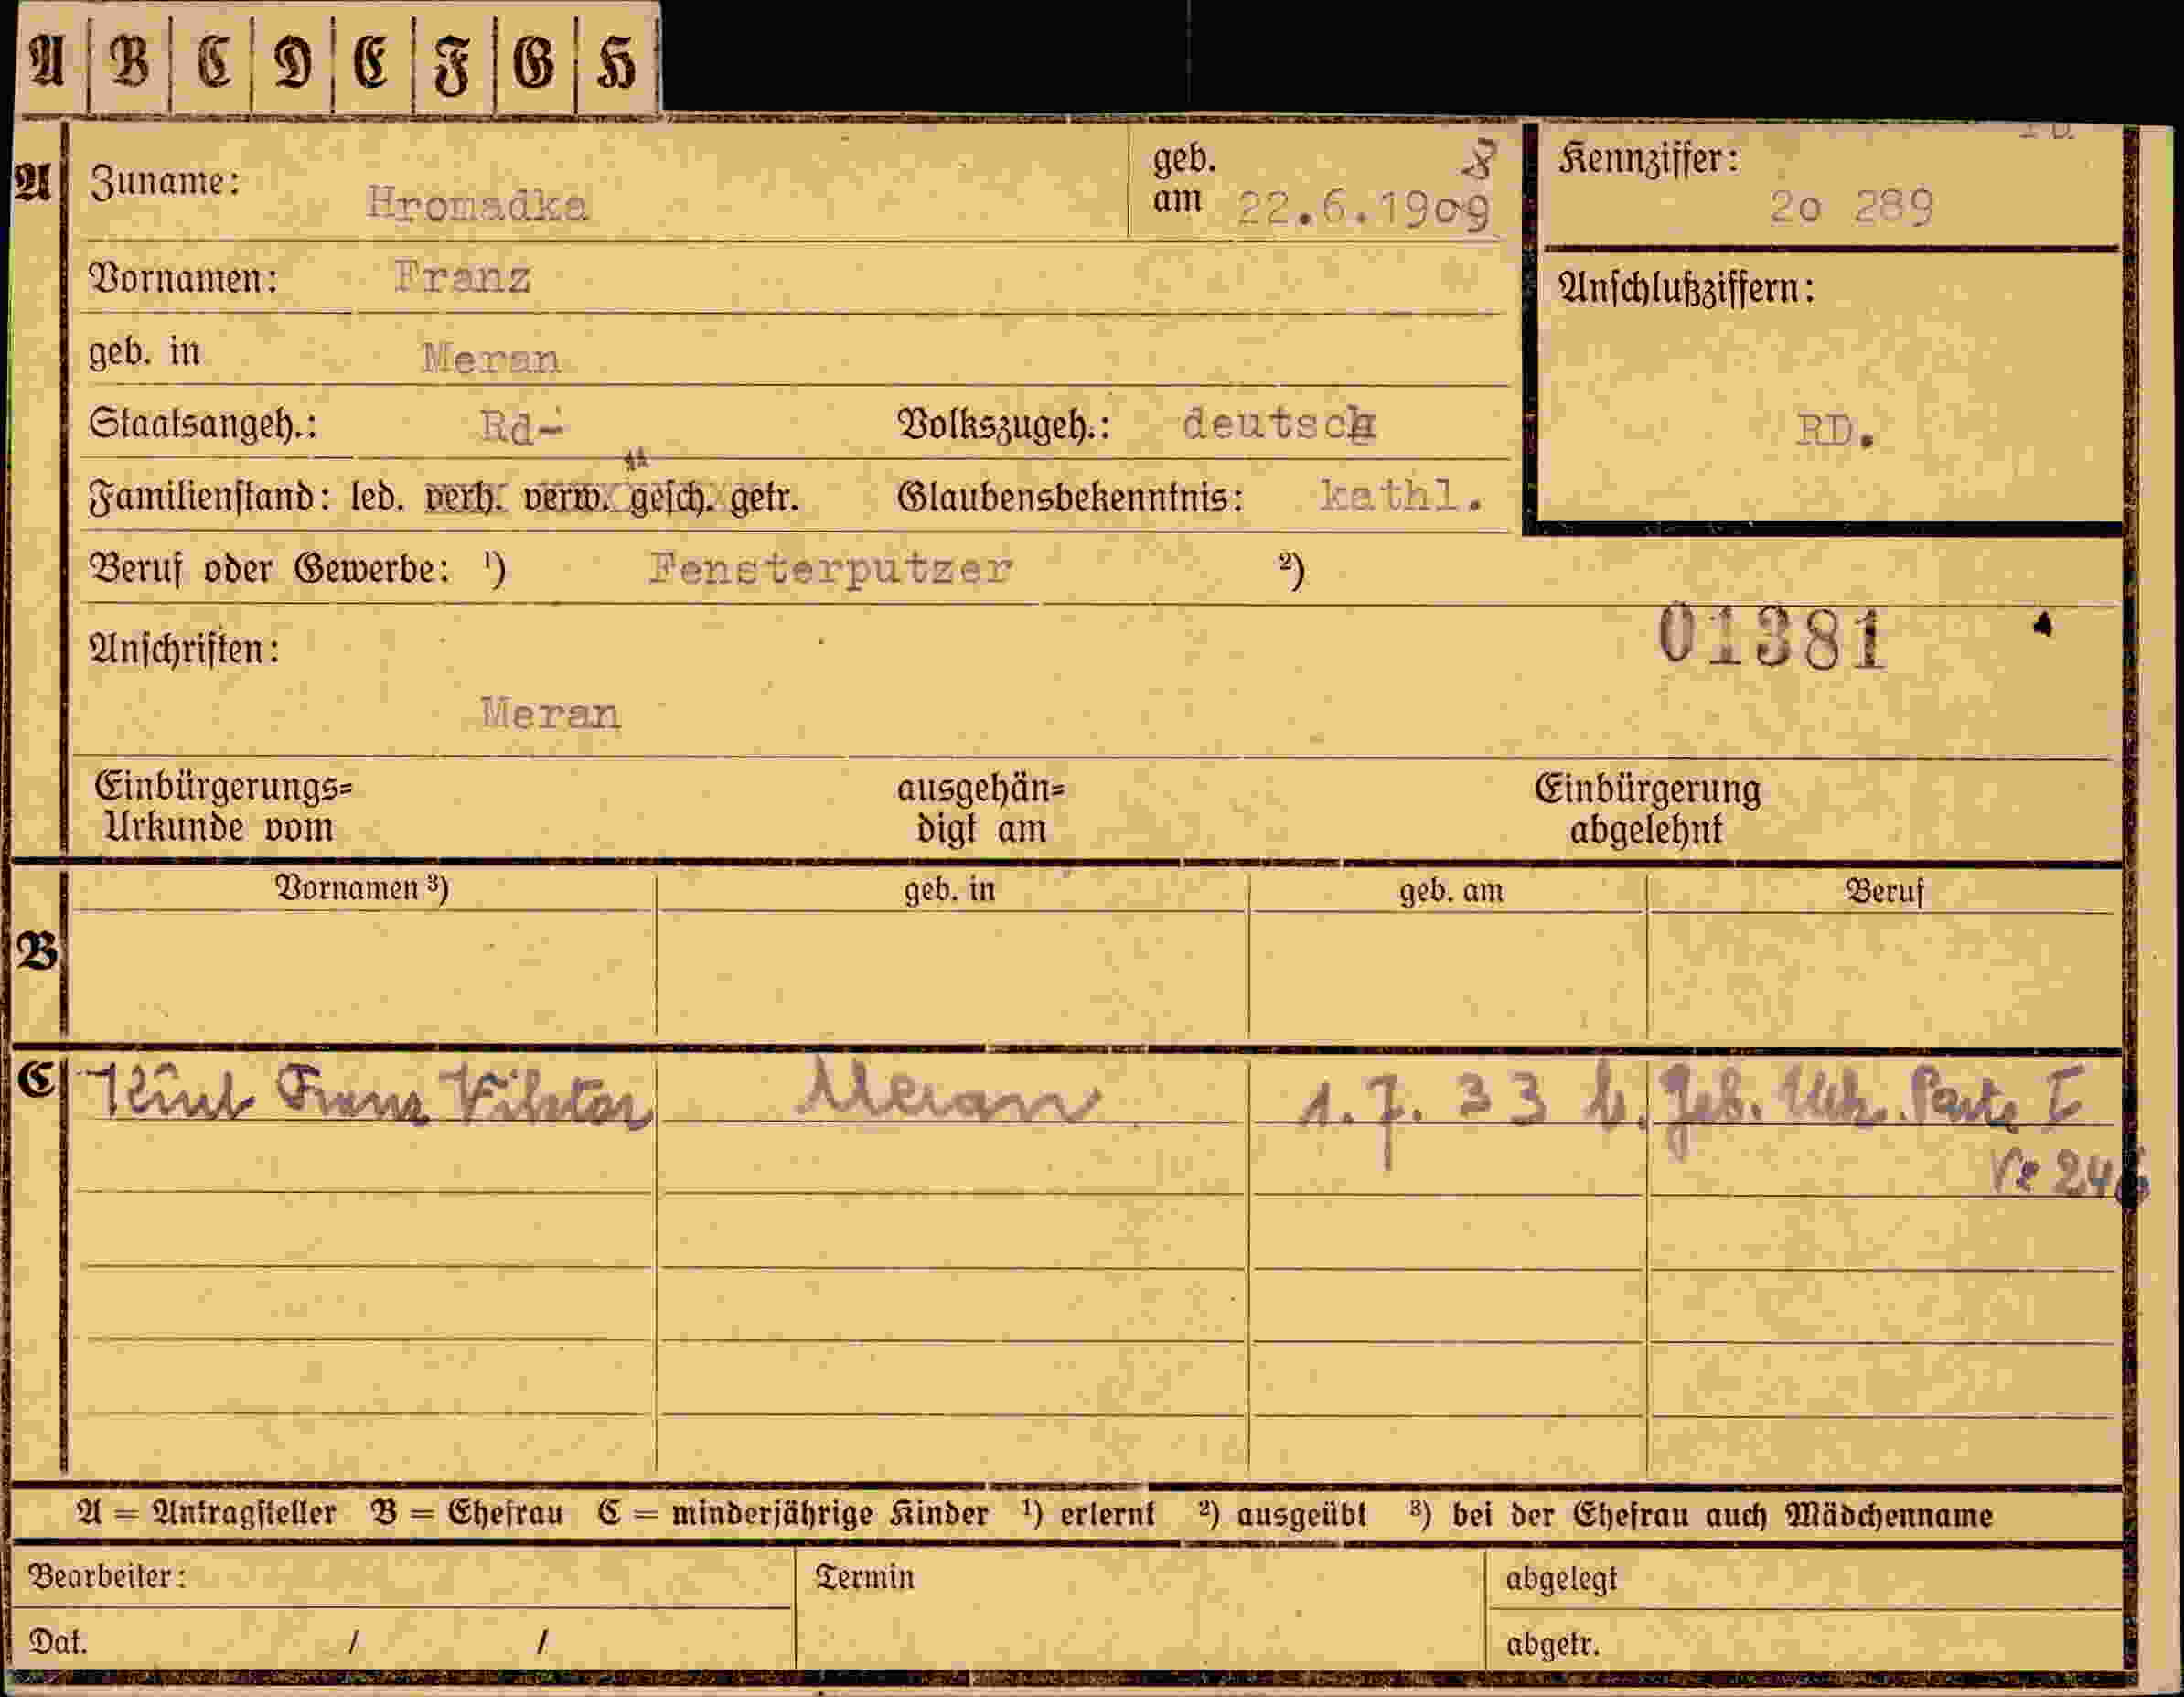 A B C D E F G H
A Zuname: Hromadka geb. am 22.6.1909 8 Kennziffer: 2o 289
Vornamen: Franz Anschlußziffern:
geb. in Meran
Staatsangeh.: Rd- Volkszugeh.: deutsch RD.
Familienstand: led. verh. verw. gesch. getr. Glaubensbekenntnis: kathl.
Beruf oder Gewerbe: ¹) Fensterputzer ²)
Anschriften: 01381
Meran
Einbürgerungs= ausgehän= Einbürgerung
Urkunde vom digt am abgelehnt
Vornamen ³) geb. in geb. am Beruf
B
C Kind Franz Viktor Meran 1.7.33 b. Geb. Urk. Parte I
Nr 246
A = Antragsteller B = Ehefrau C = minderjährige Kinder ¹) erlernt ²) ausgeübt ³) bei der Ehefrau auch Mädchenname
Bearbeiter: Termin abgelegt
Dat. / / abgetr.